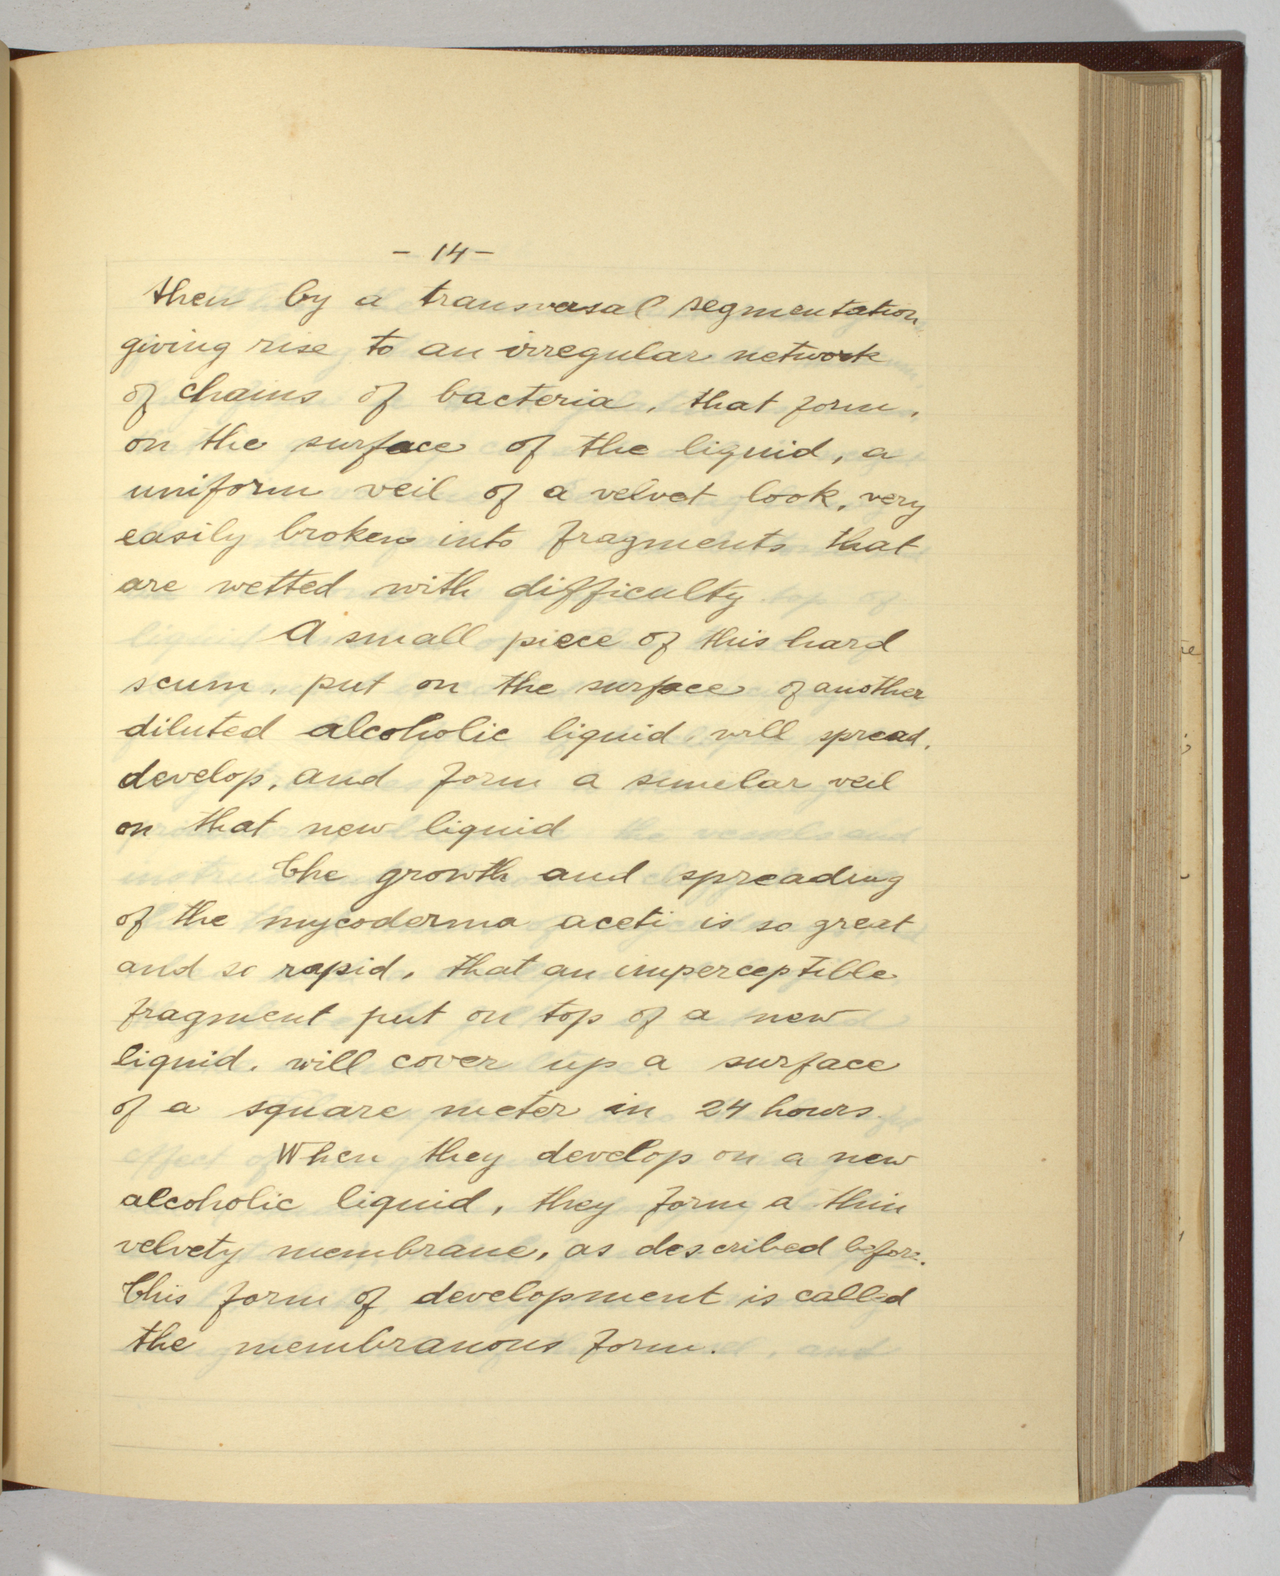 - 14 -
then by a transversal segmentation
giving rise to an irregular network
of chains of bacteria, that form,
on the surface of the liquid, a
uniform veil of a velvet look, very
easily broken into fragments that
are wetted with difficulty
A small piece of this hard
scum, put on the surface of another
diluted alcoholic liquid, will spread,
develop, and form a similar veil
on that new liquid
The growth and spreading
of the mycoderma aceti is so great
and so rapid, that an imperceptible
fragment put on top of a new
liquid, will cover up a surface
of a square meter in 24 hours.
When they develop on a new
alcoholic liquid, they form a thin
velvety membrane, as described before.
This form of development is called
the membranous form.